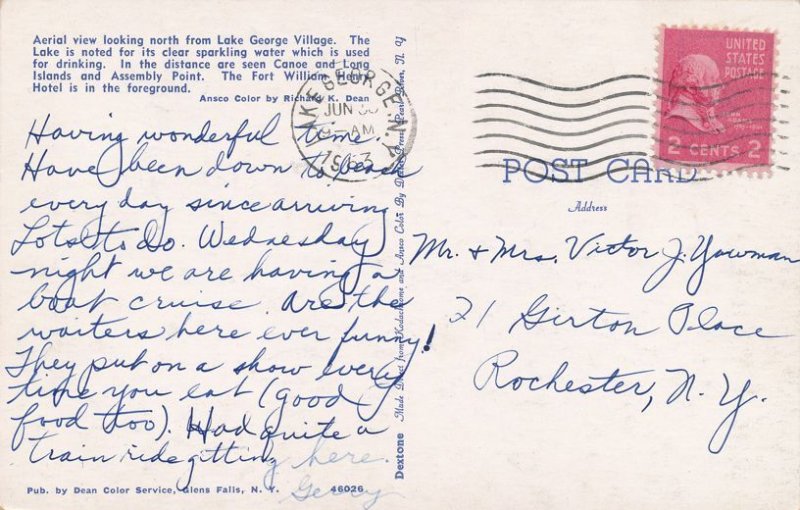 Aerial view looking north from Lake George Village. The
Lake is noted for its clear sparkling water which is used
for drinking. In the distance are seen Canoe and Long
Islands and Assembly Point. The Fort William Henry
Hotel is in the foreground.
Ansco Color by Richard K. Dean
Having wonderful time.
Have been down to beach
every day since arriving.
Lots to do. Wednesday
night we are having a
boat cruise. Are the
waiters here ever funny!
They put on a show every
time you eat (good
food too). Had quite a
train ride gitting here.
Gerry
Pub. by Dean Color Service, Glens Falls, N. Y. 46026
Dextone Made Direct from Kodachrome and Ansco Color By Dexter Press, Pearl River, N. Y.
LAKE GEORGE, N.Y.
JUN 30
AM
1953
UNITED
STATES
POSTAGE
2 CENTS 2
POST CARD
Address
Mr. + Mrs. Victor J. Yowman
21 Girton Place
Rochester, N.Y.